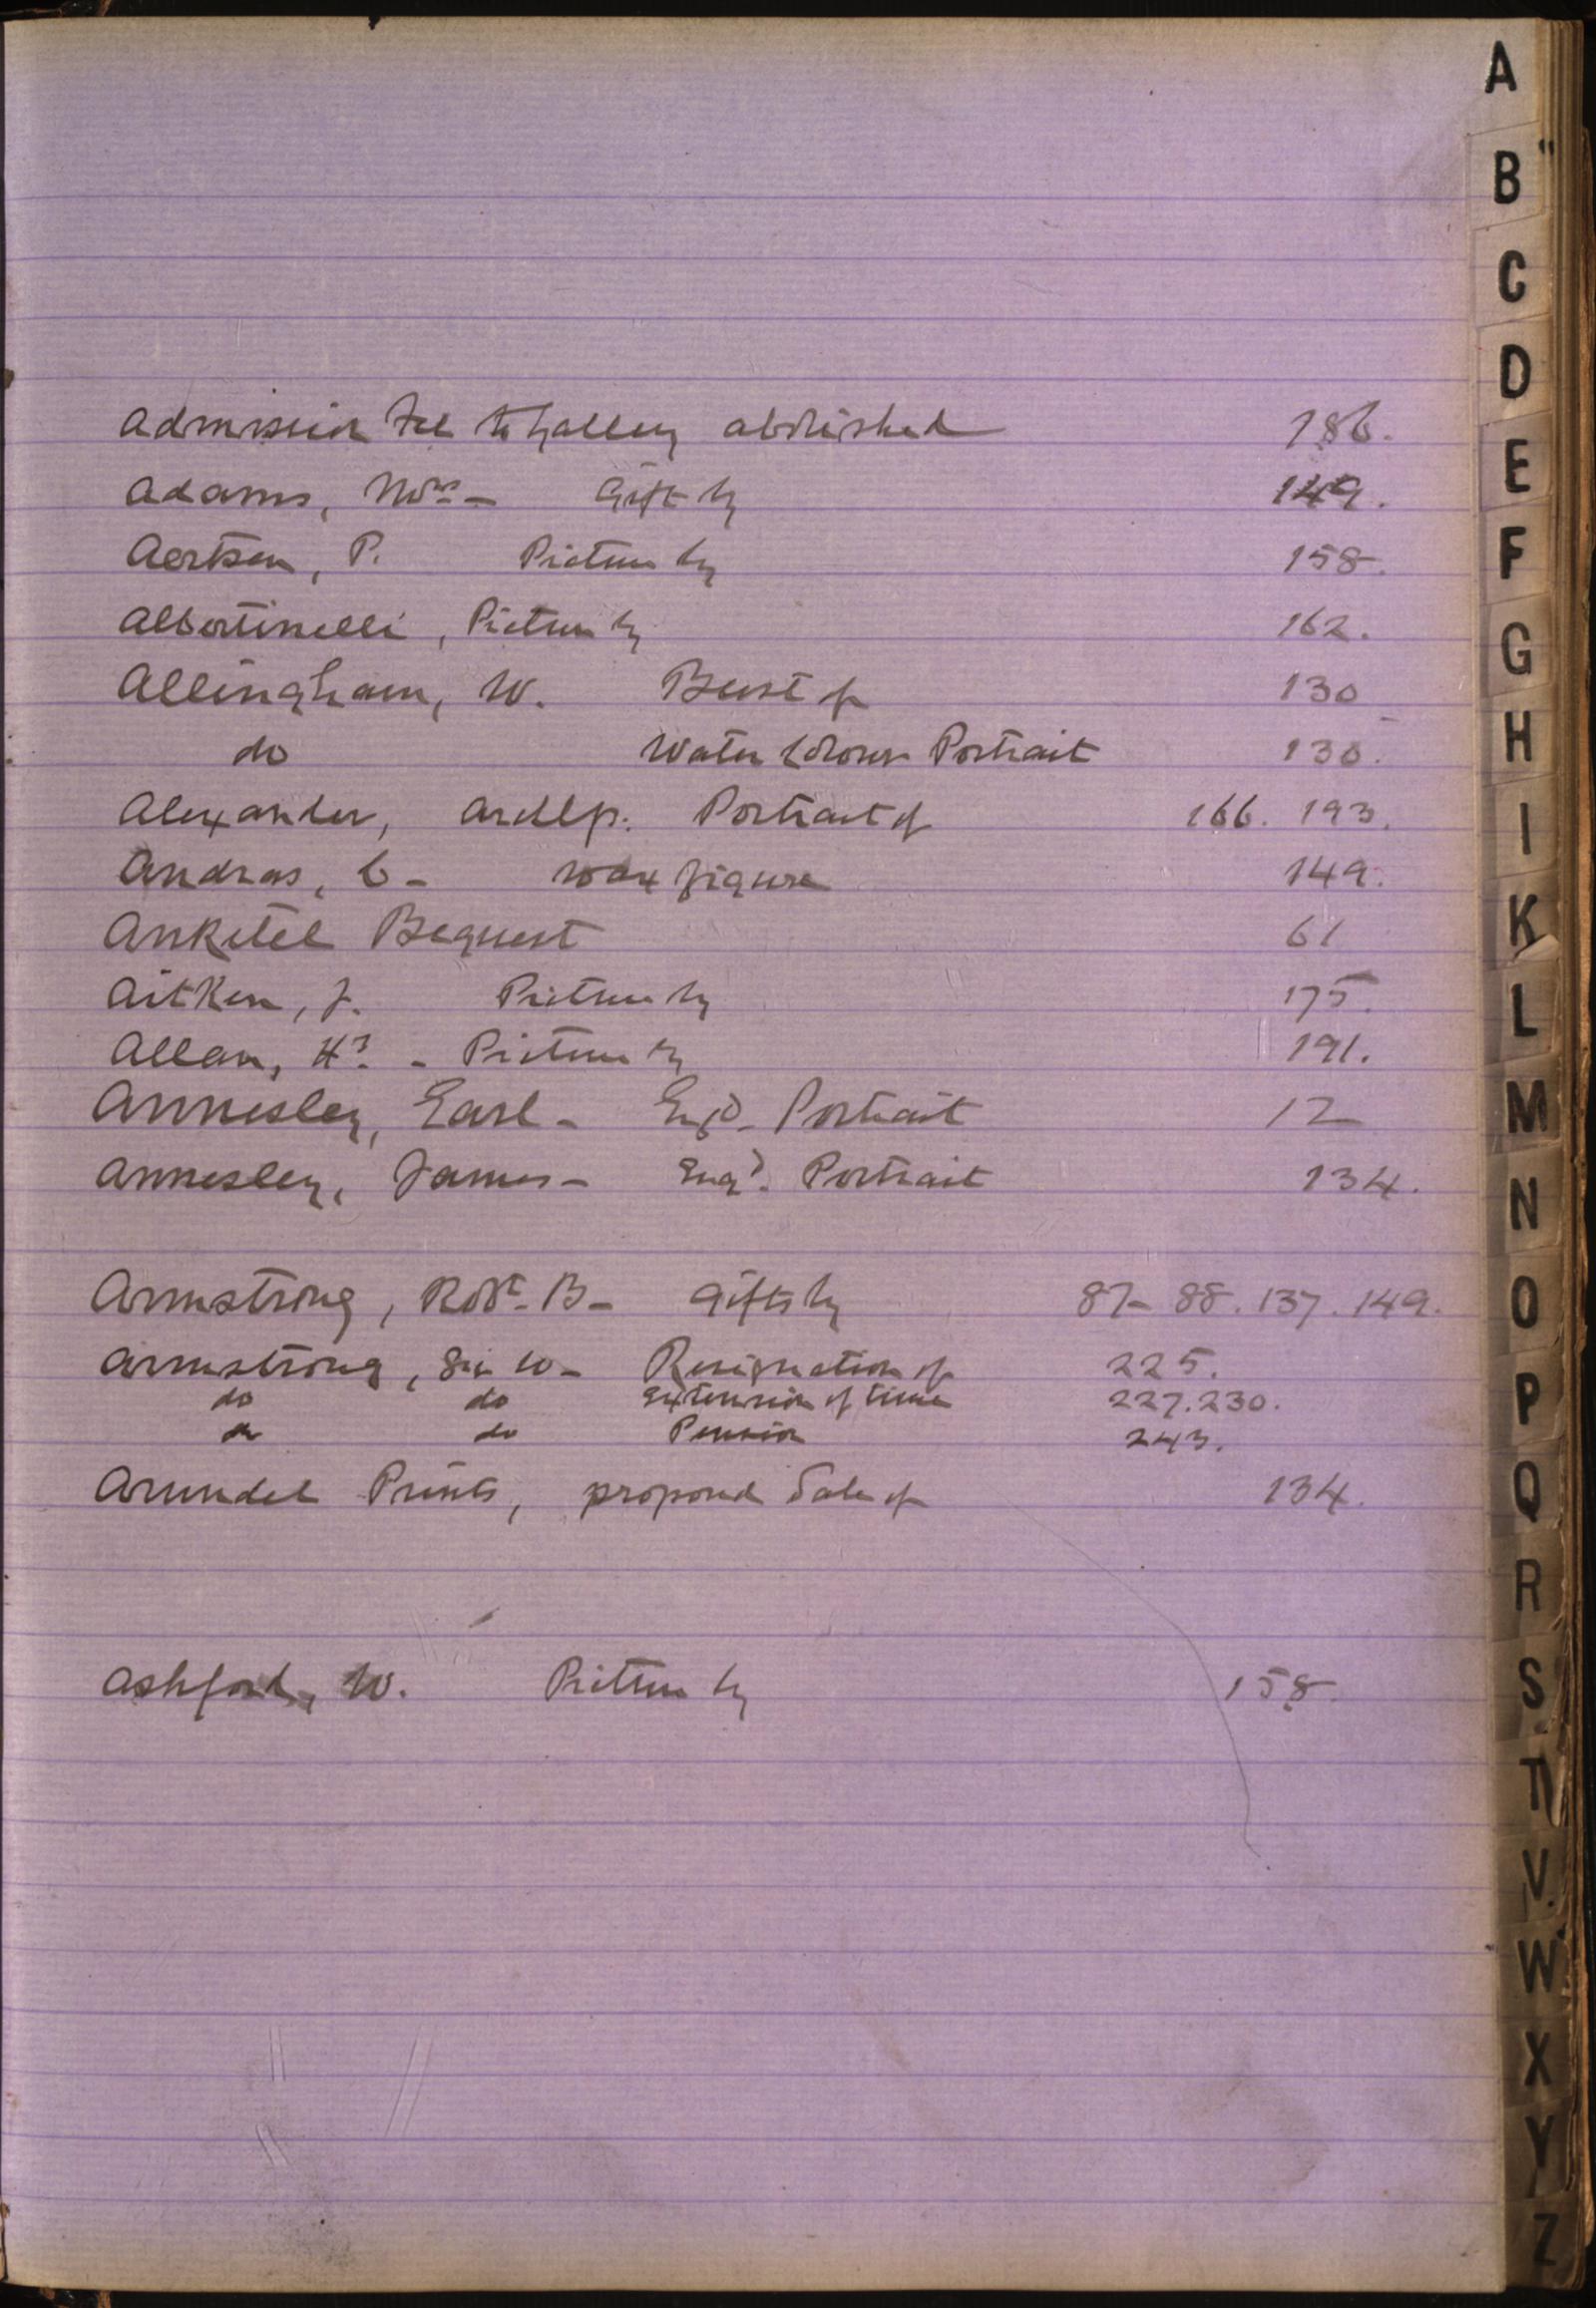 Admission Fee to Gallery abolished 186.
Adams, Mrs - Gift by 149.
Aertsen, P. Picture by 158.
Albertinelli, Picture by 162.
Allingham, W. Bust of 130
do Water Colour Portrait 130.
Alexander, Archbp. Portrait of 166. 193.
Andras, C - Wax figure 149.
Anketel Bequest 61
Aitken, J. Picture by 175.
Allan, Hy. - Picture by 191.
Annesley, Earl - Engd. Portrait 12
Annesley, James - Engd. Portrait 134.
Armstrong, Robt. B - Gifts by 87 - 88. 137. 149.
Armstrong, Sir W - Resignation of 225.
do do Extension of time 227. 230.
do do Pension 243.
Arundel Prints, proposed Sale of 134.
Ashford, W. Picture by 158.
A
B
C
D
E
F
G
H
I
K
L
M
N
O
P
Q
R
S
T
V
W
X
Y
Z